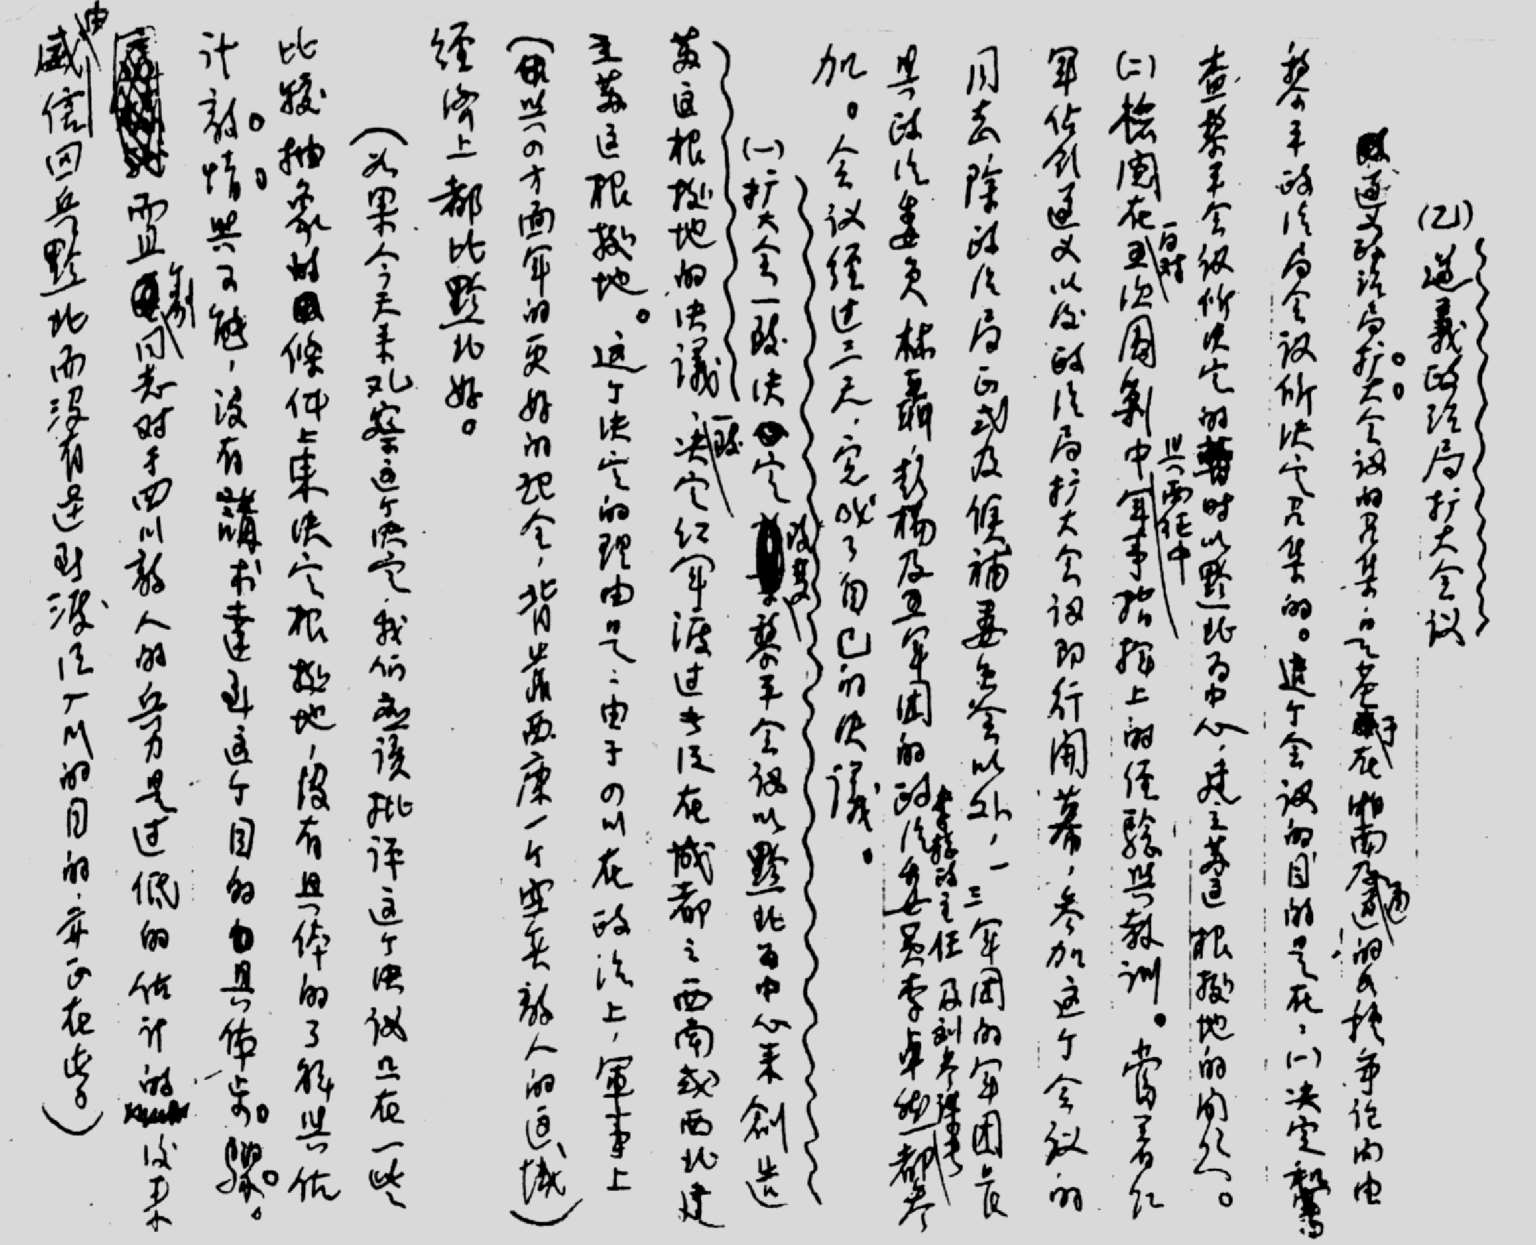 (乙)遵义政治局扩大会议
遵义政治局扩大会议的召集，是基于在湘南及通道的各种争论而由
黎平政治局会议所决定召集的。这个会议的目的是在：(一)决定和审
查黎平会议所决定的暂时以黔北为中心，建立苏区根据地的问题。
(二)检阅在五次围剿中与西征中军事指挥上的经验与教训。当着红
军占领遵义以后政治局扩大会议即行开幕，参加这个会议的
同志除政治局正式及候补委员会以外，一三军团的军团长
与政治委员林聂彭杨及五军团的政治委员李卓然李总政主任及刘参谋长都参
加。会议经过三天，完成了自己的决议。
(一)扩大会一致决定改变黎平会议以黔北为中心来创造
苏区根据地的决議一致决定红军渡过长江在成都之西南或西北建
立苏区根据地。这个决定的理由是：由于四川在政治上，軍事上
(与四方面军的更好的配合，背靠西康一个空虚敌人的区域)
经济上都比黔北好。
(如果今天来观察这个决定，我们应该批评这个决议只在一些
比较抽象的条件上来决定根据地，没有具体的了解与估
计敌情与可能，没有講求達到这个目的的具体步骤。
而且个别同志对于四川敌人的兵力是过低的估计的，后来
由威信回兵黔北而没有达到渡江入川的目的，亦正在此。)